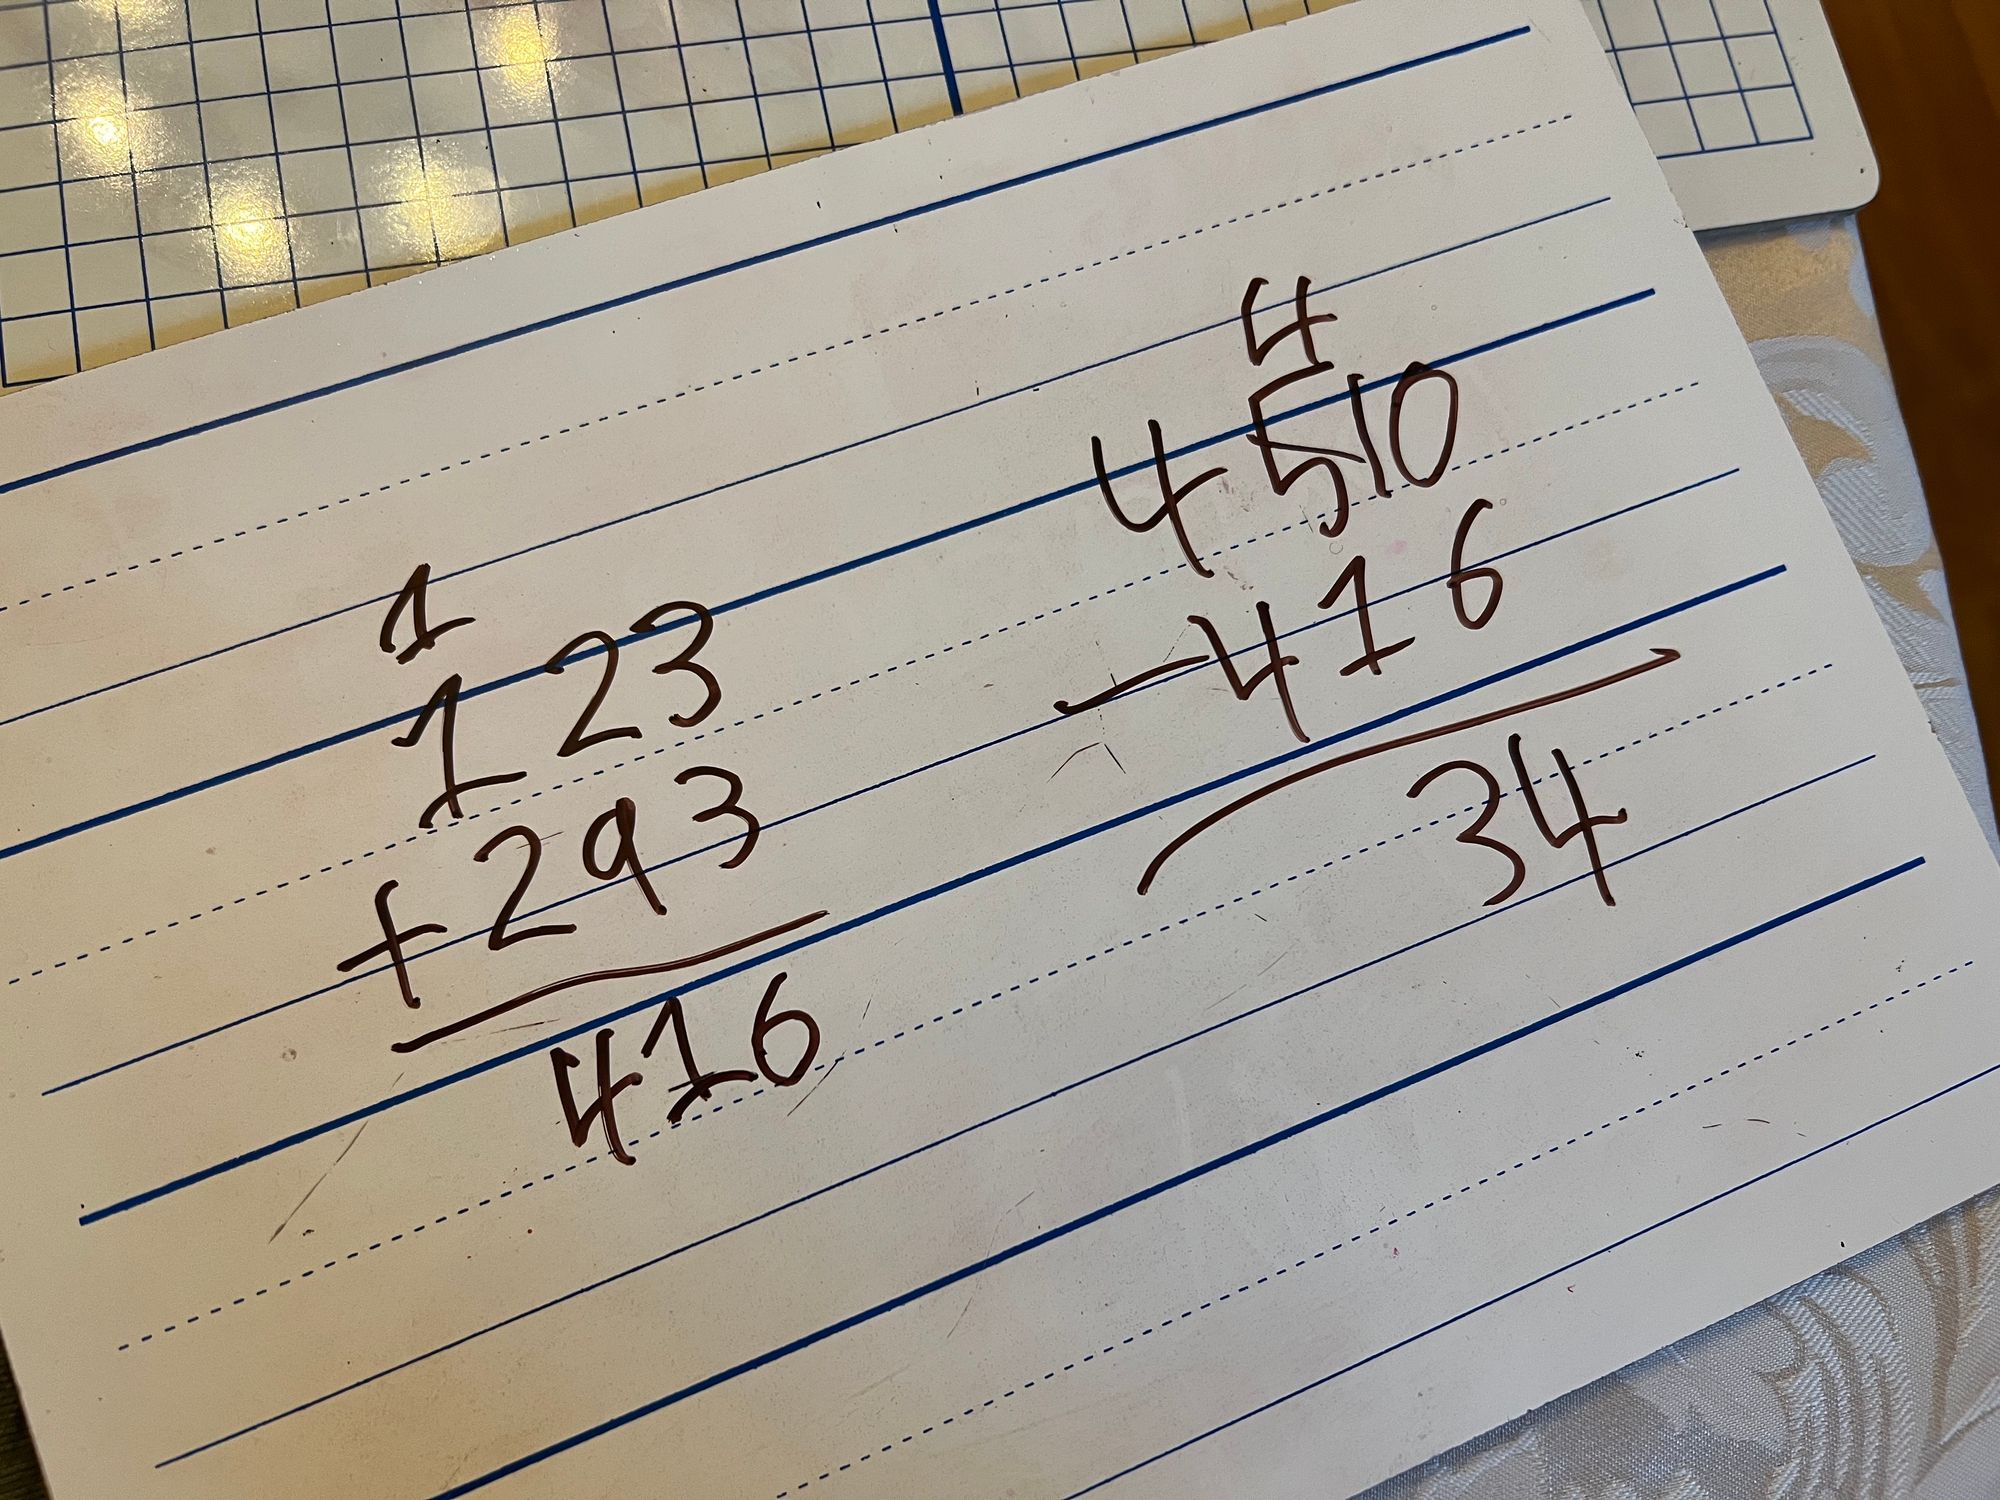 1
123
+293
416
4
4510
-416
34